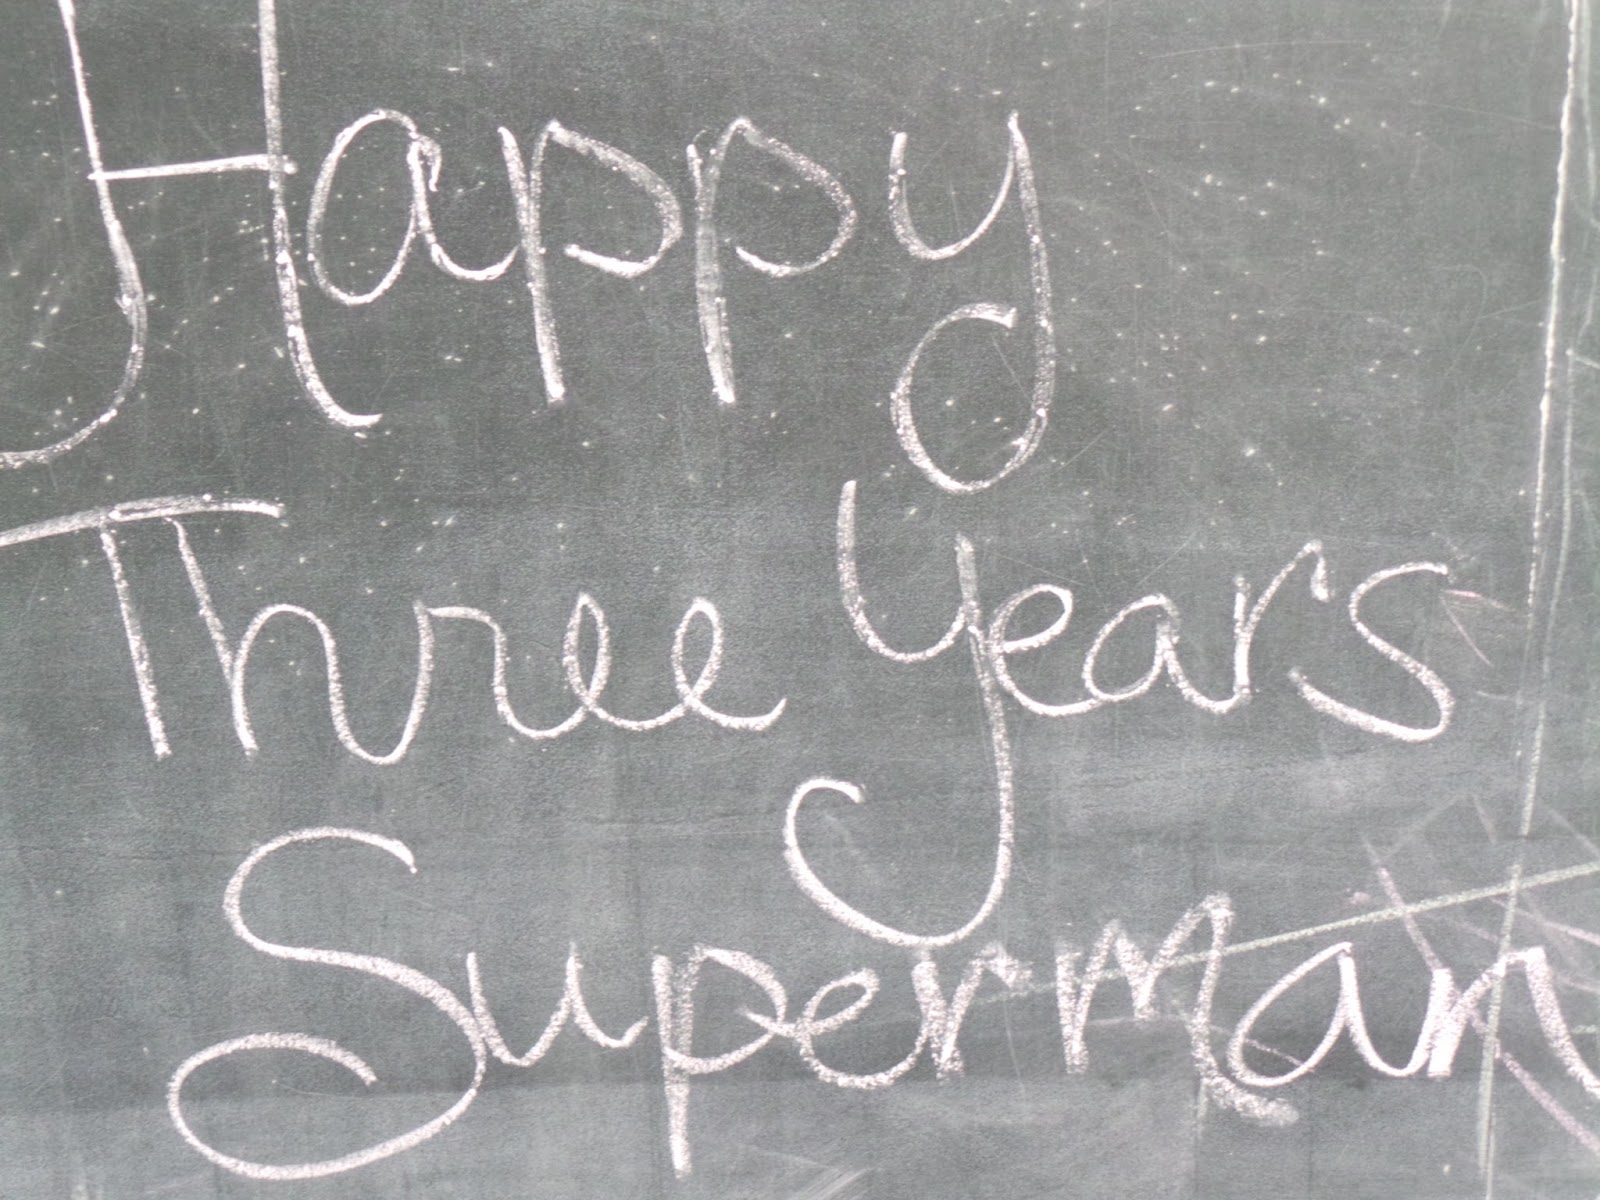 Happy
Three Years
Superman